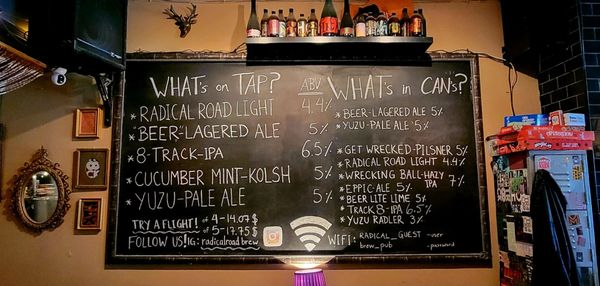 WHAT's on TAP?
ABV
* RADICAL ROAD LIGHT 4.4%
* BEER-LAGERED ALE 5%
* 8-TRACK-IPA 6.5%
* CUCUMBER MINT-KOLSH 5%
* YUZU-PALE ALE 5%
TRY A FLIGHT! of 4-14.07 $
of 5-17.75 $
FOLLOW US!IG: radicalroadbrew
WHAT's in CAN's?
* BEER-LAGERED ALE 5%
* YUZU-PALE ALE 5%
* GET WRECKED-PILSNER 5%
* RADICAL ROAD LIGHT 4.4%
* WRECKING BALL-HAZY IPA 7%
* EPPIC-ALE 5%
* BEER LITE LIME 5%
* TRACK 8-IPA 6.5%
* YUZU RADLER 3%
WIFI: RADICAL_GUEST -user
brew_pub -password